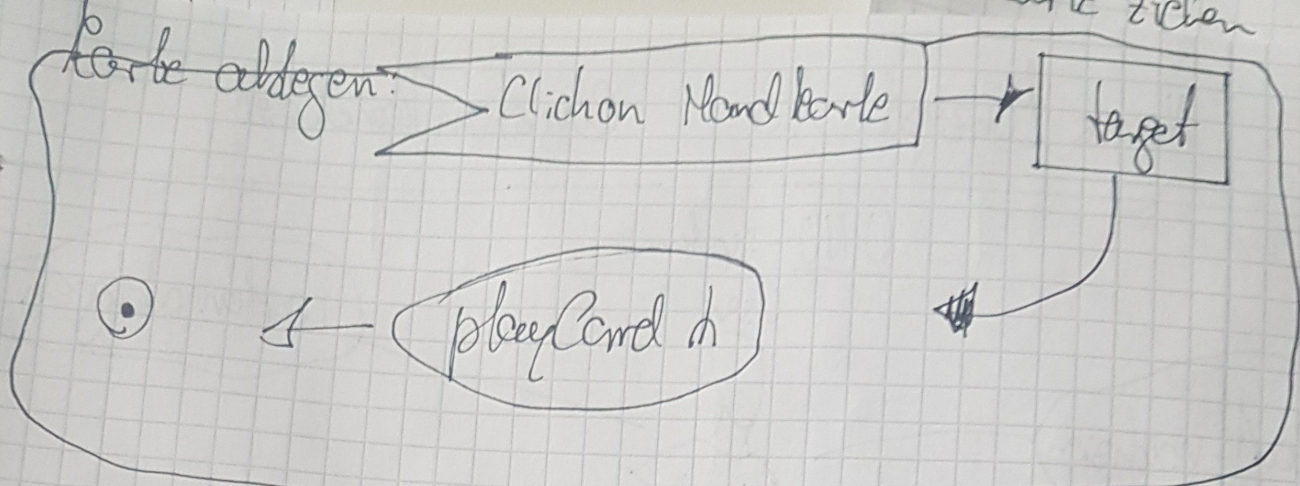 ziehen
Karte ablegen:
Click on Handkarte
target
playCard